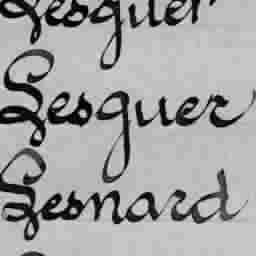 Lesguer
Lesguer
Lesnard